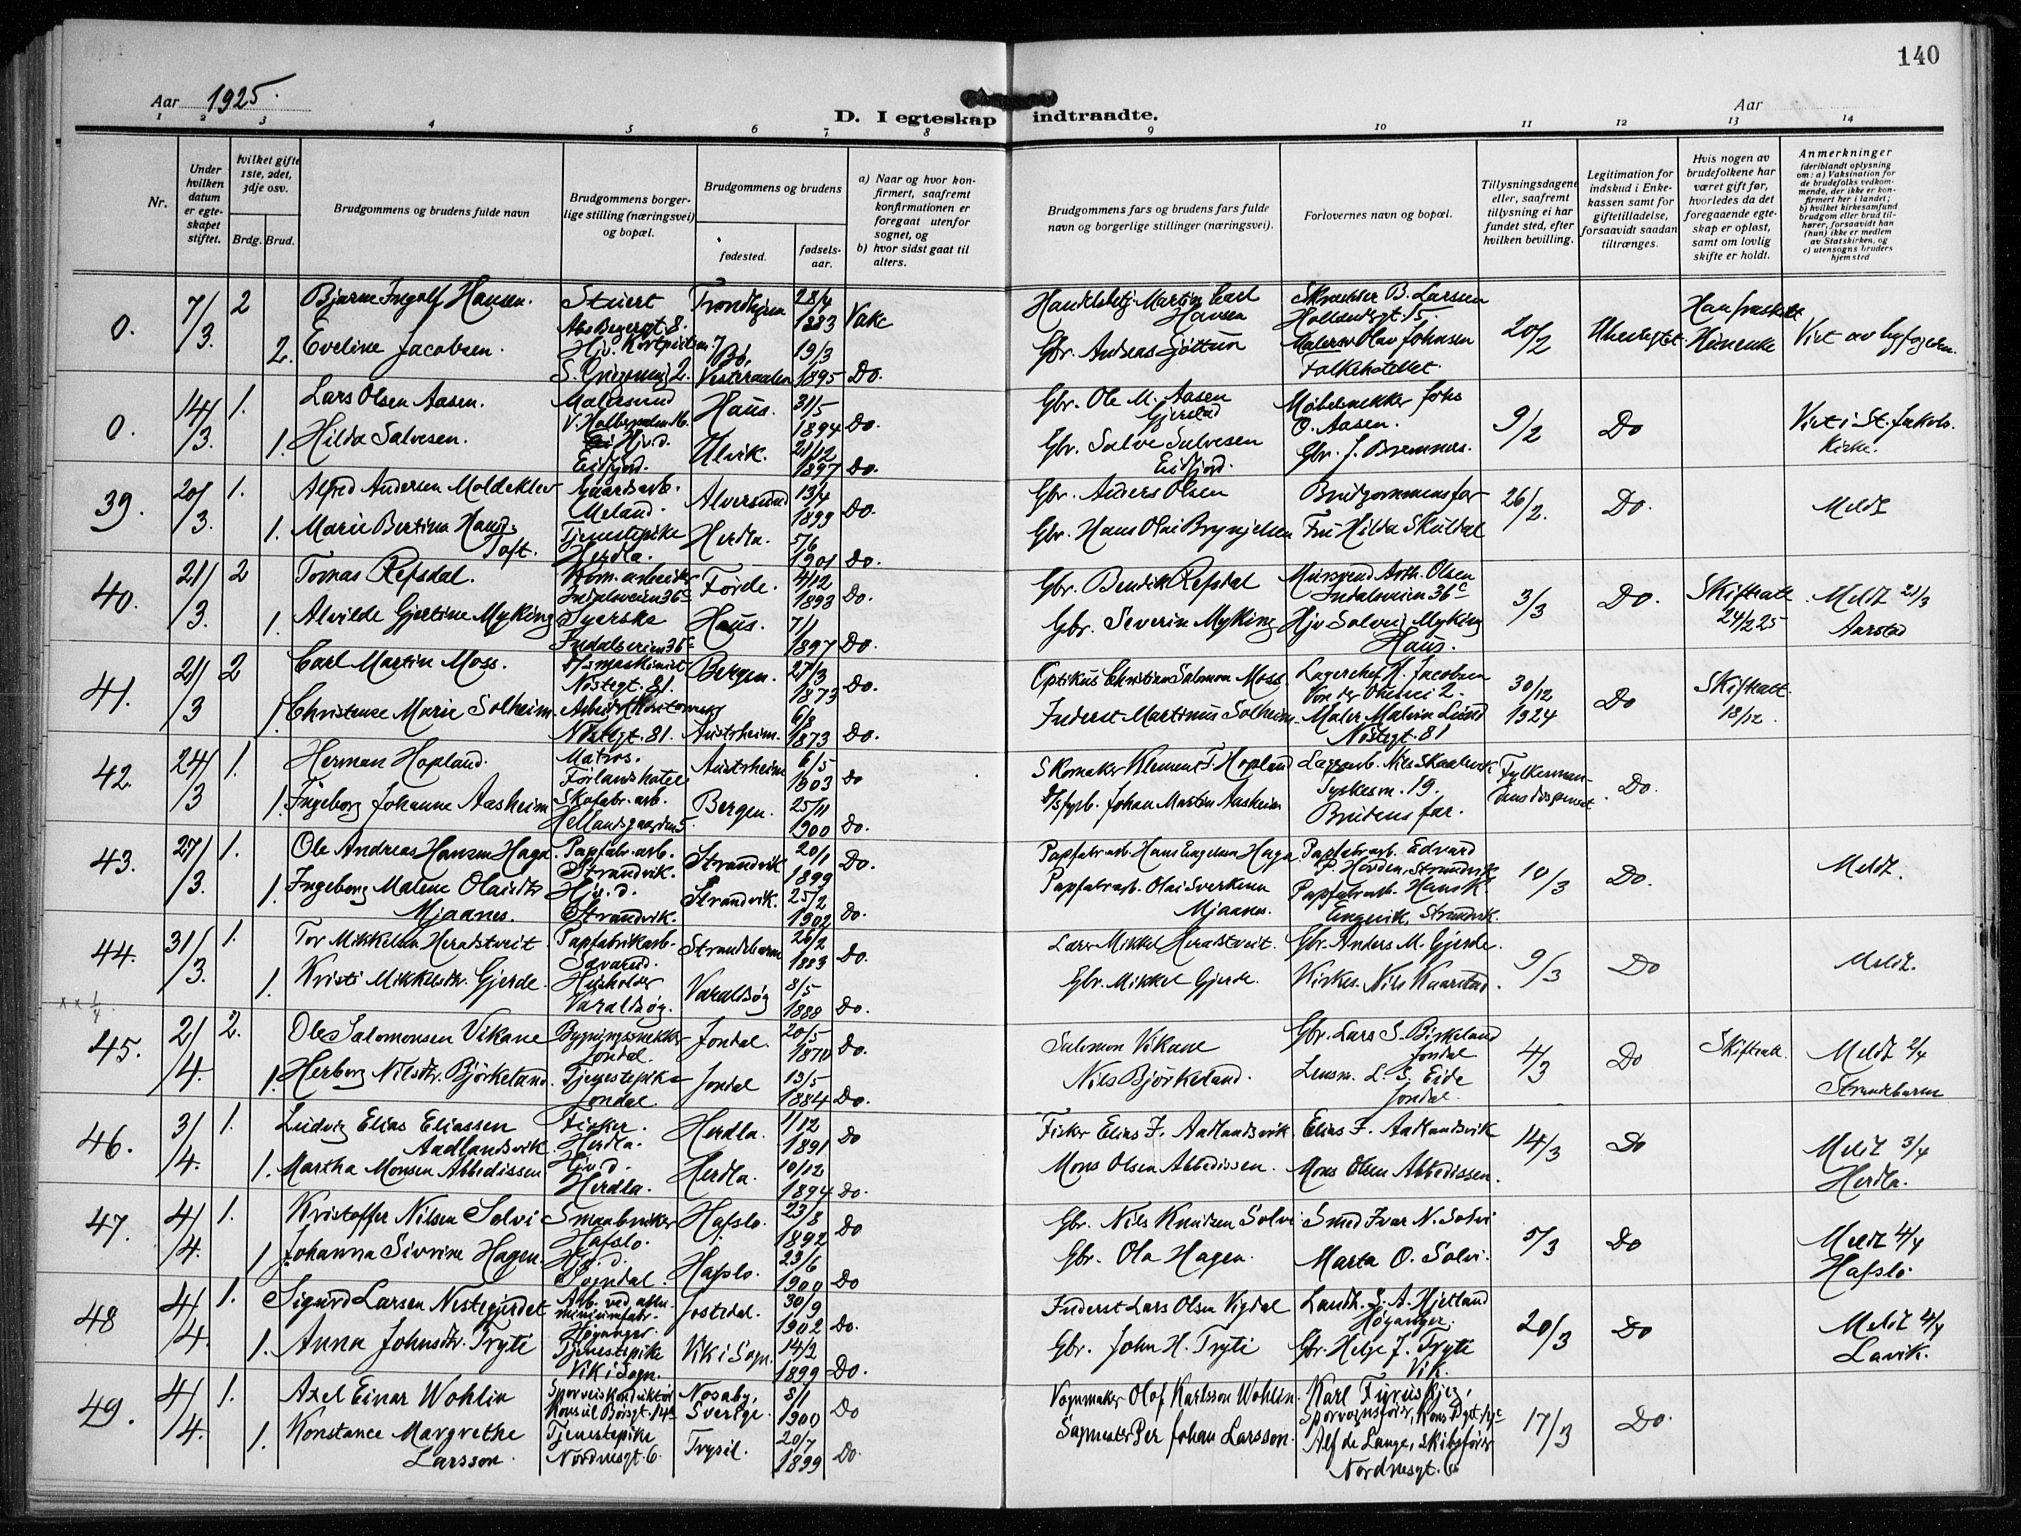 140
Aar 1925.
Aar
D. I egteskap indtraadte.
1 2 3 4 5 6 7 8 9 10 11 12 13 14
Nr.
Under hvilken datum er egteskapet stiftet.
hvilket gifte 1ste, 2det, 3dje osv.
Brdg. Brud.
Brudgommens og brudens fulde navn
Brudgommens borgerlige stilling (næringsvei) og bopæl.
Brudgommens og brudens
fødested.
fødselsaar.
a) Naar og hvor konfirmert, saafremt konfirmationen er foregaat utenfor sognet, og
b) hvor sidst gaat til alters.
Brudgommens fars og brudens fars fulde navn og borgerlige stillinger (næringsvei).
Forlovernes navn og bopæl.
Tillysningsdagene eller, saafremt tillysning ei har fundet sted, efter hvilken bevilling.
Legitimation for indskud i Enkekassen samt for giftetilladelse, forsaavidt saadan tiltrænges.
Hvis nogen av brudefolkene har været gift før, hvorledes da det foregaaende egteskap er opløst, samt om lovlig skifte er holdt.
Anmerkninger
(deriblandt oplysning om: a) Vaksination for de brudefolks vedkommende, der ikke er konfirmert her i landet; b) hvilket kirkesamfund brudgom eller brud tilhører, forsaavidt han (hun) ikke er medlem av Statskirken, og c) utensogns bruders hjemsted
0. 7/3. 2 Bjarne Ingolf Hansen. Stuert Trondhjem 28/4 1883 Vake Martin Carl Hansen B. Larsen 20/2
2. Eveline Jacobsen. Bø, Vesteraalen 19/3 1895 Do. Gbr. Andreas Olav Johnsen
0. 14/3. 1. Lars Olsen Aasen. Haus. 31/5 1894 Do. Gbr. Ole M. Aasen Møbelsnekker Johs O. Aasen. 9/2 Do Viet i St. Jakobs. Kirke.
1. Hilda Salvesen. Hjv.d. Eidfjord. Ulvik. 21/12 1897 Do. Gbr. Salve Salvesen Eidfjord. Gbr. J. Bremnes.
39. 20/3. 1. Alfred Andersen Moldeklev Gaardsarb. Meland. Alversund 13/4 1899 Do. Gbr. Anders Olsen Brudgommens far 26/2. Do. Meldt
1. Marie Bertine Toft. Tjenestepike Herdla. Herdla. 5/6 1901 Do. Gbr. Hans Olai Brynjelsen Fru Hilda Skuldal
40. 21/3. 2 Tomas Refsdal. Kom. arbeider Indalsveien 36c Førde. 4/12 1893 Do. Gbr. Bendik Refsdal Mursvend Arth. Olsen Indalsveien 36c 3/3 Do. Skiftratt 24/2 25 Meldt 21/3 Aarstad
1. Alvilde Gjertine Myking Syerske Indalsveien 36c Haus. 7/1 1897 Do. Gbr. Severin Myking Hjv Solveig Myking Haus.
41. 21/3 2 Carl Martin Moss. Nøstegt. 81. Bergen. 27/3 1873 Do. Optikus Christian Salomon Moss Lagerchef H. Jacobsen 30/12 1924 Do Skiftratt. 18/12.
1. Christense Marie Solheim. Nøstegt. 81. Austrheim. 6/8 1873 Do. Inderst Martinus Solheim. Maler Malvin Lund Nøstegt. 81
42. 24/3 1. Herman Hopland. Matros. Austrheim 6/5 1903 Do Skomaker Klement T. Hopland Tyskesm. 19. Do.
1. Ingeborg Johanne Aasheim Skofabr. arb. Hellandsgaarden 5. Bergen. 25/11 1900 Do. Johan Martin Aasheim Brudens far.
43. 27/3. 1. Ole Andreas Hansen Haga Papfabr. arb. Strandvik. Strandvik 20/1 1899 Do. Papfabr. arb. Hans Engelsen Haga Papfabr. arb. Edvard P. Hovden, Strandvik 10/3 Do. Meldt.
1. Ingeborg Malene Olaisdtr Mjaanes. Hjv.d. Strandvik. Strandvik. 25/2 1902 Do. Papfabr. arb. Olai Sverkesen Mjaanes. Papfabr. arb. Hans K. Engevik, Strandvik.
44. 31/3. 1. Tor Mikkelsen Heradstveit Papfabrikarb. Strandebarm 26/2 1883 Do. Lars Mikkel Heradstveit. Gbr. Anders M. Gjerde. 9/3 Do Meldt.
1. Kristi Mikkelsdtr. Gjerde. Husholder Varaldsøy. Varaldsøy 8/5 1888 Do. Gbr. Mikkel Gjerde. Kirkes. Nils Kaarstad.
x x 1/4.
45. 2/4. 2. Ole Salomonsen Vikane Bygningssnekker Jondal. Jondal. 20/5 1870 Do. Salomon Vikane Gbr. Lars S. Birkeland Jondal 4/3 Do Skiftratt Meldt 2/4 Strandebarm
1. Herborg Nilsdtr. Bjørkeland. Tjenestepike Jondal. Jondal 13/5 1884 Do. Nils Bjørkeland. Lensm. L. S. Eide Jondal.
46. 3/4. 1. Ludvig Elias Eliassen Aadlandsvik Fisker. Herdla. Herdla. 1/12 1891 Do Fisker Elias J. Aadlandsvik. Elias J. Aadlandsvik 14/3 Do Meldt 3/4 Herdla.
1. Martha Monsen Abbedissen Hjv.d. Herdla. Herdla. 10/12 1894 Do. Mons Olsen Abbedissen. Mons Olsen Abbedissen.
47. 4/4. 1. Kristoffer Nilsen Solvi Smaabruker Hafslo. Hafslo. 23/8 1892 Do Gbr. Nils Knutsen Solvi Smed Ivar N. Solvi 5/3 Do Meldt 4/4 Hafslo
1. Johanna Sivrine Hagen. Hjv.d. Sogndal. Hafslo. 23/6 1900 Do Gbr. Ola Hagen. Marta O. Solvi.
48 4/4 1. Sigurd Larsen Nestegjerdet Arb. ved aluminiumfabr. Høyanger Jostedal. 30/9 1902 Do. Inderst Lars Olsen Vigdal Landh. S. A. Hjetland Høyanger. 20/3 Do Meldt 4/4 Lavik.
1. Anna Johnsdtr. Tryti Tjenestepike Vik i Sogn. Vik i Sogn. 14/2 1899 Do. Gbr. John H. Tryti Gbr. Helge J. Tryti Vik.
49. 4/4. 1. Axel Einar Wohlin Sporveiskonduktør Konsul Børsgt. 14c Nosaby, Sverige. 8/1 1900 Do Vognmaker Olof Karlsson Wohlin. Karl 17/3 Do.
1. Konstance Margrethe Larsson. Tjenestepike Nordnesgt. 6. Trysil. 20/7 1899 Do Sagmester Per Johan Larsson. Alf de Lange, skibsfører Nordnesgt. 6